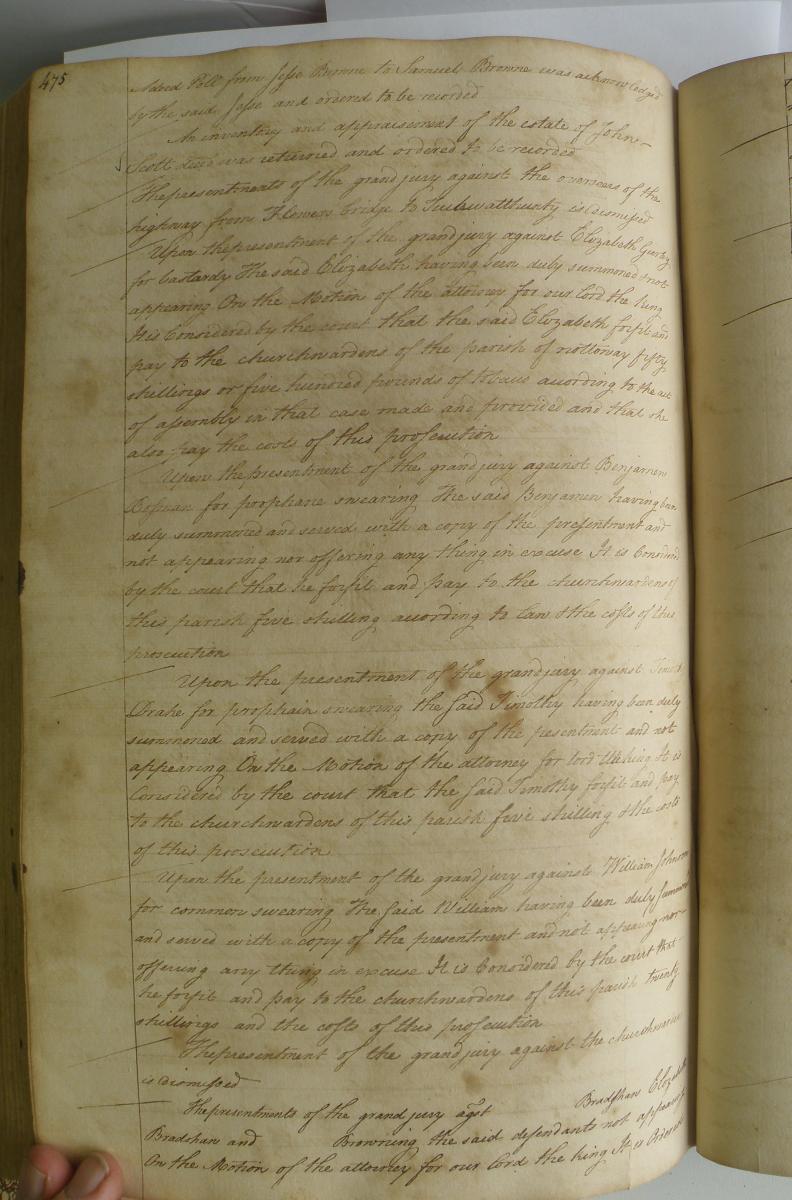 475
A deed Poll from Jesse Browne to Samuel Browne was acknowledged
by the said Jesse and ordered to be recorded
An inventory and appraisement of the estate of John
Scott decd was returned and ordered to be recorded
The presentments of the grand jury against the overseers of the
highway from Flowers bridge to is dismissed
Upon the presentment of the grand jury against Elizabeth
for bastardy The said Elizabeth having been duly summoned & not
appearing On the Motion of the attorney for our Lord the king
It is Considered by the court that the said Elizabeth forfit and
pay to the churchwardens of the parish of nottoway fifty
shillings or five hundred pounds of tobacco according to the act
of assembly in that case made and provided and that she
also pay the costs of this prosecution
Upon the presentment of the grand jury against Benjamen
for prophane swearing The said Benjamen having been
duly summoned and served with a copy of the presentment and
not appearing nor offering any thing in excuse It is Considered
by the court that he forfit and pay to the churchwardens of
this parish five shilling according to law & the costs of this
prosecution
Upon the presentment of the grand jury against
Drake for prophain swearing the said Timothy having been duly
summoned and served with a copy of the presentment and not
appearing On the Motion of the attorney for lord the king It is
Considered by the court that the said Timothy forfit and pay
to the churchwardens of this parish five shilling & the costs
of this prosecution
Upon the presentment of the grand jury against William Johnson
for common swearing The said William having been duly summoned
and served with a copy of the presentment and not appearing nor
offering any thing in excuse It is Considered by the court that
he forfit and pay to the churchwardens of this parish twenty
shillings and the costs of this prosecution
The presentment of the grand jury against the churchwarden
is dismissed
The presentments of the grand jury agst Bradshaw Elizabeth
Bradshaw and Browning the said defendants not appearing
On the Motion of the attorney for our lord the king It is Ordered